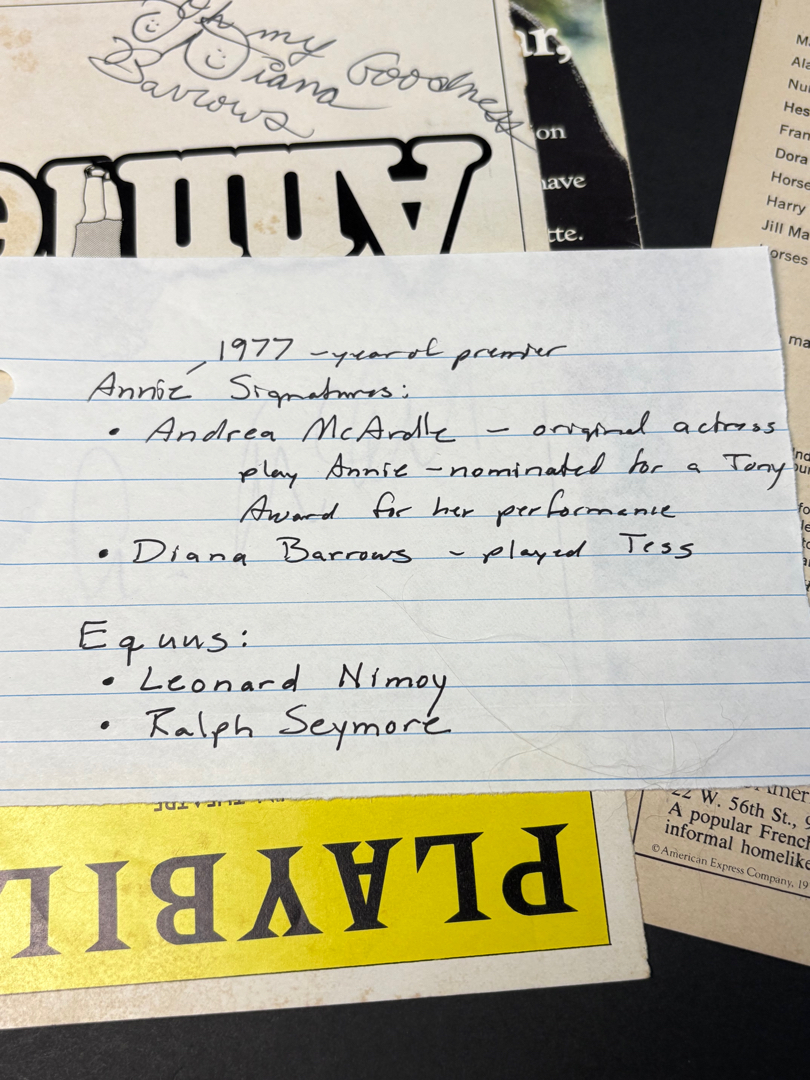 Oh my Goodness
Diana
Barrows
Annie
on
have
tte.
Ala
Nu
Hes
Fran
Dora
Horse
Harry
Jill Ma
orses
ma
1977 - year of premier
Annie Signatures:
• Andrea McArdle - original actress
play Annie - nominated for a Tony
Award for her performance
• Diana Barrows - played Tess
Equus:
• Leonard Nimoy
• Ralph Seymore
PLAYBIL
22 W. 56th St., 9
A popular French
informal homelike
© American Express Company, 19